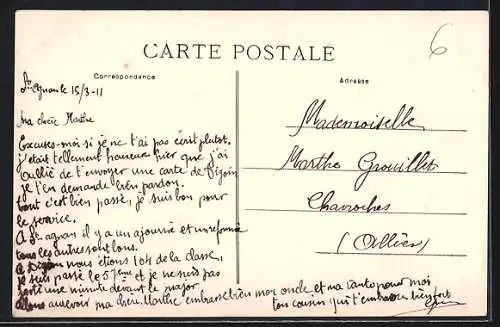 CARTE POSTALE
6
Correspondance
Adresse
St Agnan le 15/3-11
Ma chère Marthe
Excuses-moi si je ne t'ai pas écrit plutot.
j'étais tellement heureux hier que j'ai
oublié de t'envoyer une carte de Digoin
je t'en demande bien pardon.
tout c'est bien passé, je suis bon pour
le service.
A St-agnan il y a un ajourné et un réformé
tous les autres sont bons.
A Digoin nous étions 104 de la classe,
je suis passé le 5ème et je ne suis pas
resté une minute devant le major
au revoir ma chère Marthe embrasse bien mon oncle et ma tante pour moi
ton cousin qui t'embrasse bien fort
Mademoiselle
Marthe Grouillet
Chavroches
(Allier)